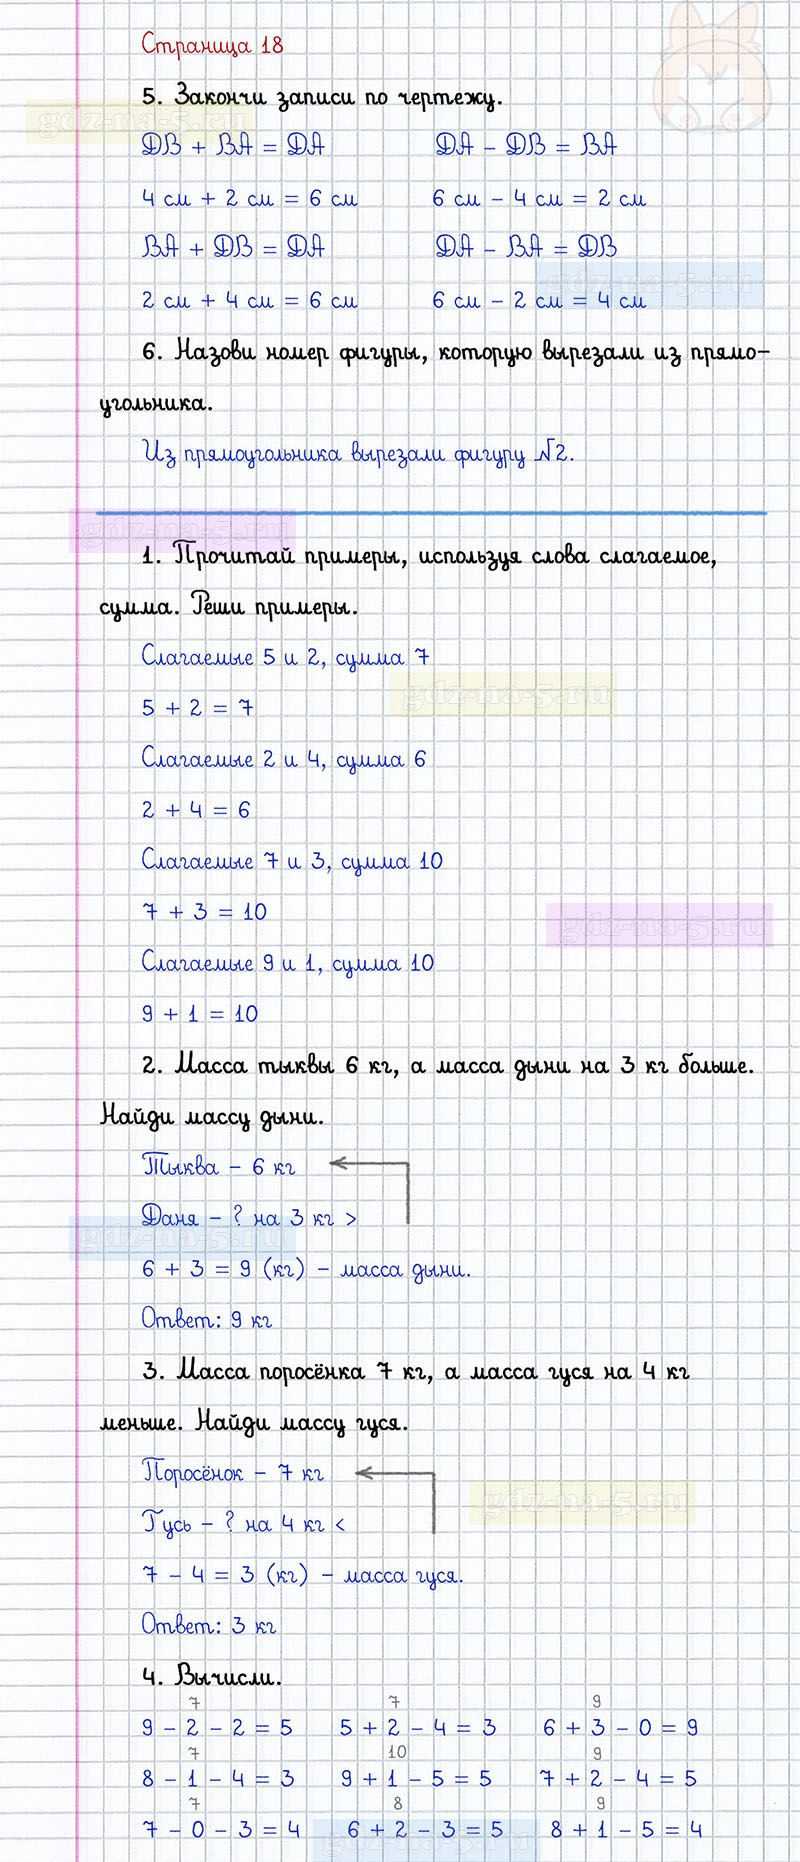 Страница 18
5. Закончи записи по чертежу.
gdz-na-5.ru
DB + BA = DA DA - DB = BA
4 см + 2 см = 6 см 6 см - 4 см = 2 см
BA + DB = DA DA - BA = DB
gdz-na-5.ru
2 см + 4 см = 6 см 6 см - 2 см = 4 см
6. Назови номер фигуры, которую вырезали из прямо-
угольника.
Из прямоугольника вырезали фигуру №2.
gdz-na-5.ru
1. Прочитай примеры, используя слова слагаемое,
сумма. Реши примеры.
Слагаемые 5 и 2, сумма 7
gdz-na-5.ru
5 + 2 = 7
Слагаемые 2 и 4, сумма 6
2 + 4 = 6
Слагаемые 7 и 3, сумма 10
7 + 3 = 10
gdz-na-5.ru
Слагаемые 9 и 1, сумма 10
9 + 1 = 10
2. Масса тыквы 6 кг, а масса дыни на 3 кг больше.
Найди массу дыни.
Тыква - 6 кг
Даня - ? на 3 кг >
gdz-na-5.ru
6 + 3 = 9 (кг) - масса дыни.
Ответ: 9 кг
3. Масса поросёнка 7 кг, а масса гуся на 4 кг
меньше. Найди массу гуся.
Поросёнок - 7 кг
gdz-na-5.ru
Гусь - ? на 4 кг <
7 - 4 = 3 (кг) - масса гуся.
Ответ: 3 кг
4. Вычисли.
7 7 9
9 - 2 - 2 = 5 5 + 2 - 4 = 3 6 + 3 - 0 = 9
7 10 9
8 - 1 - 4 = 3 9 + 1 - 5 = 5 7 + 2 - 4 = 5
7 8 9
7 - 0 - 3 = 4 6 + 2 - 3 = 5 8 + 1 - 5 = 4
gdz-na-5.ru